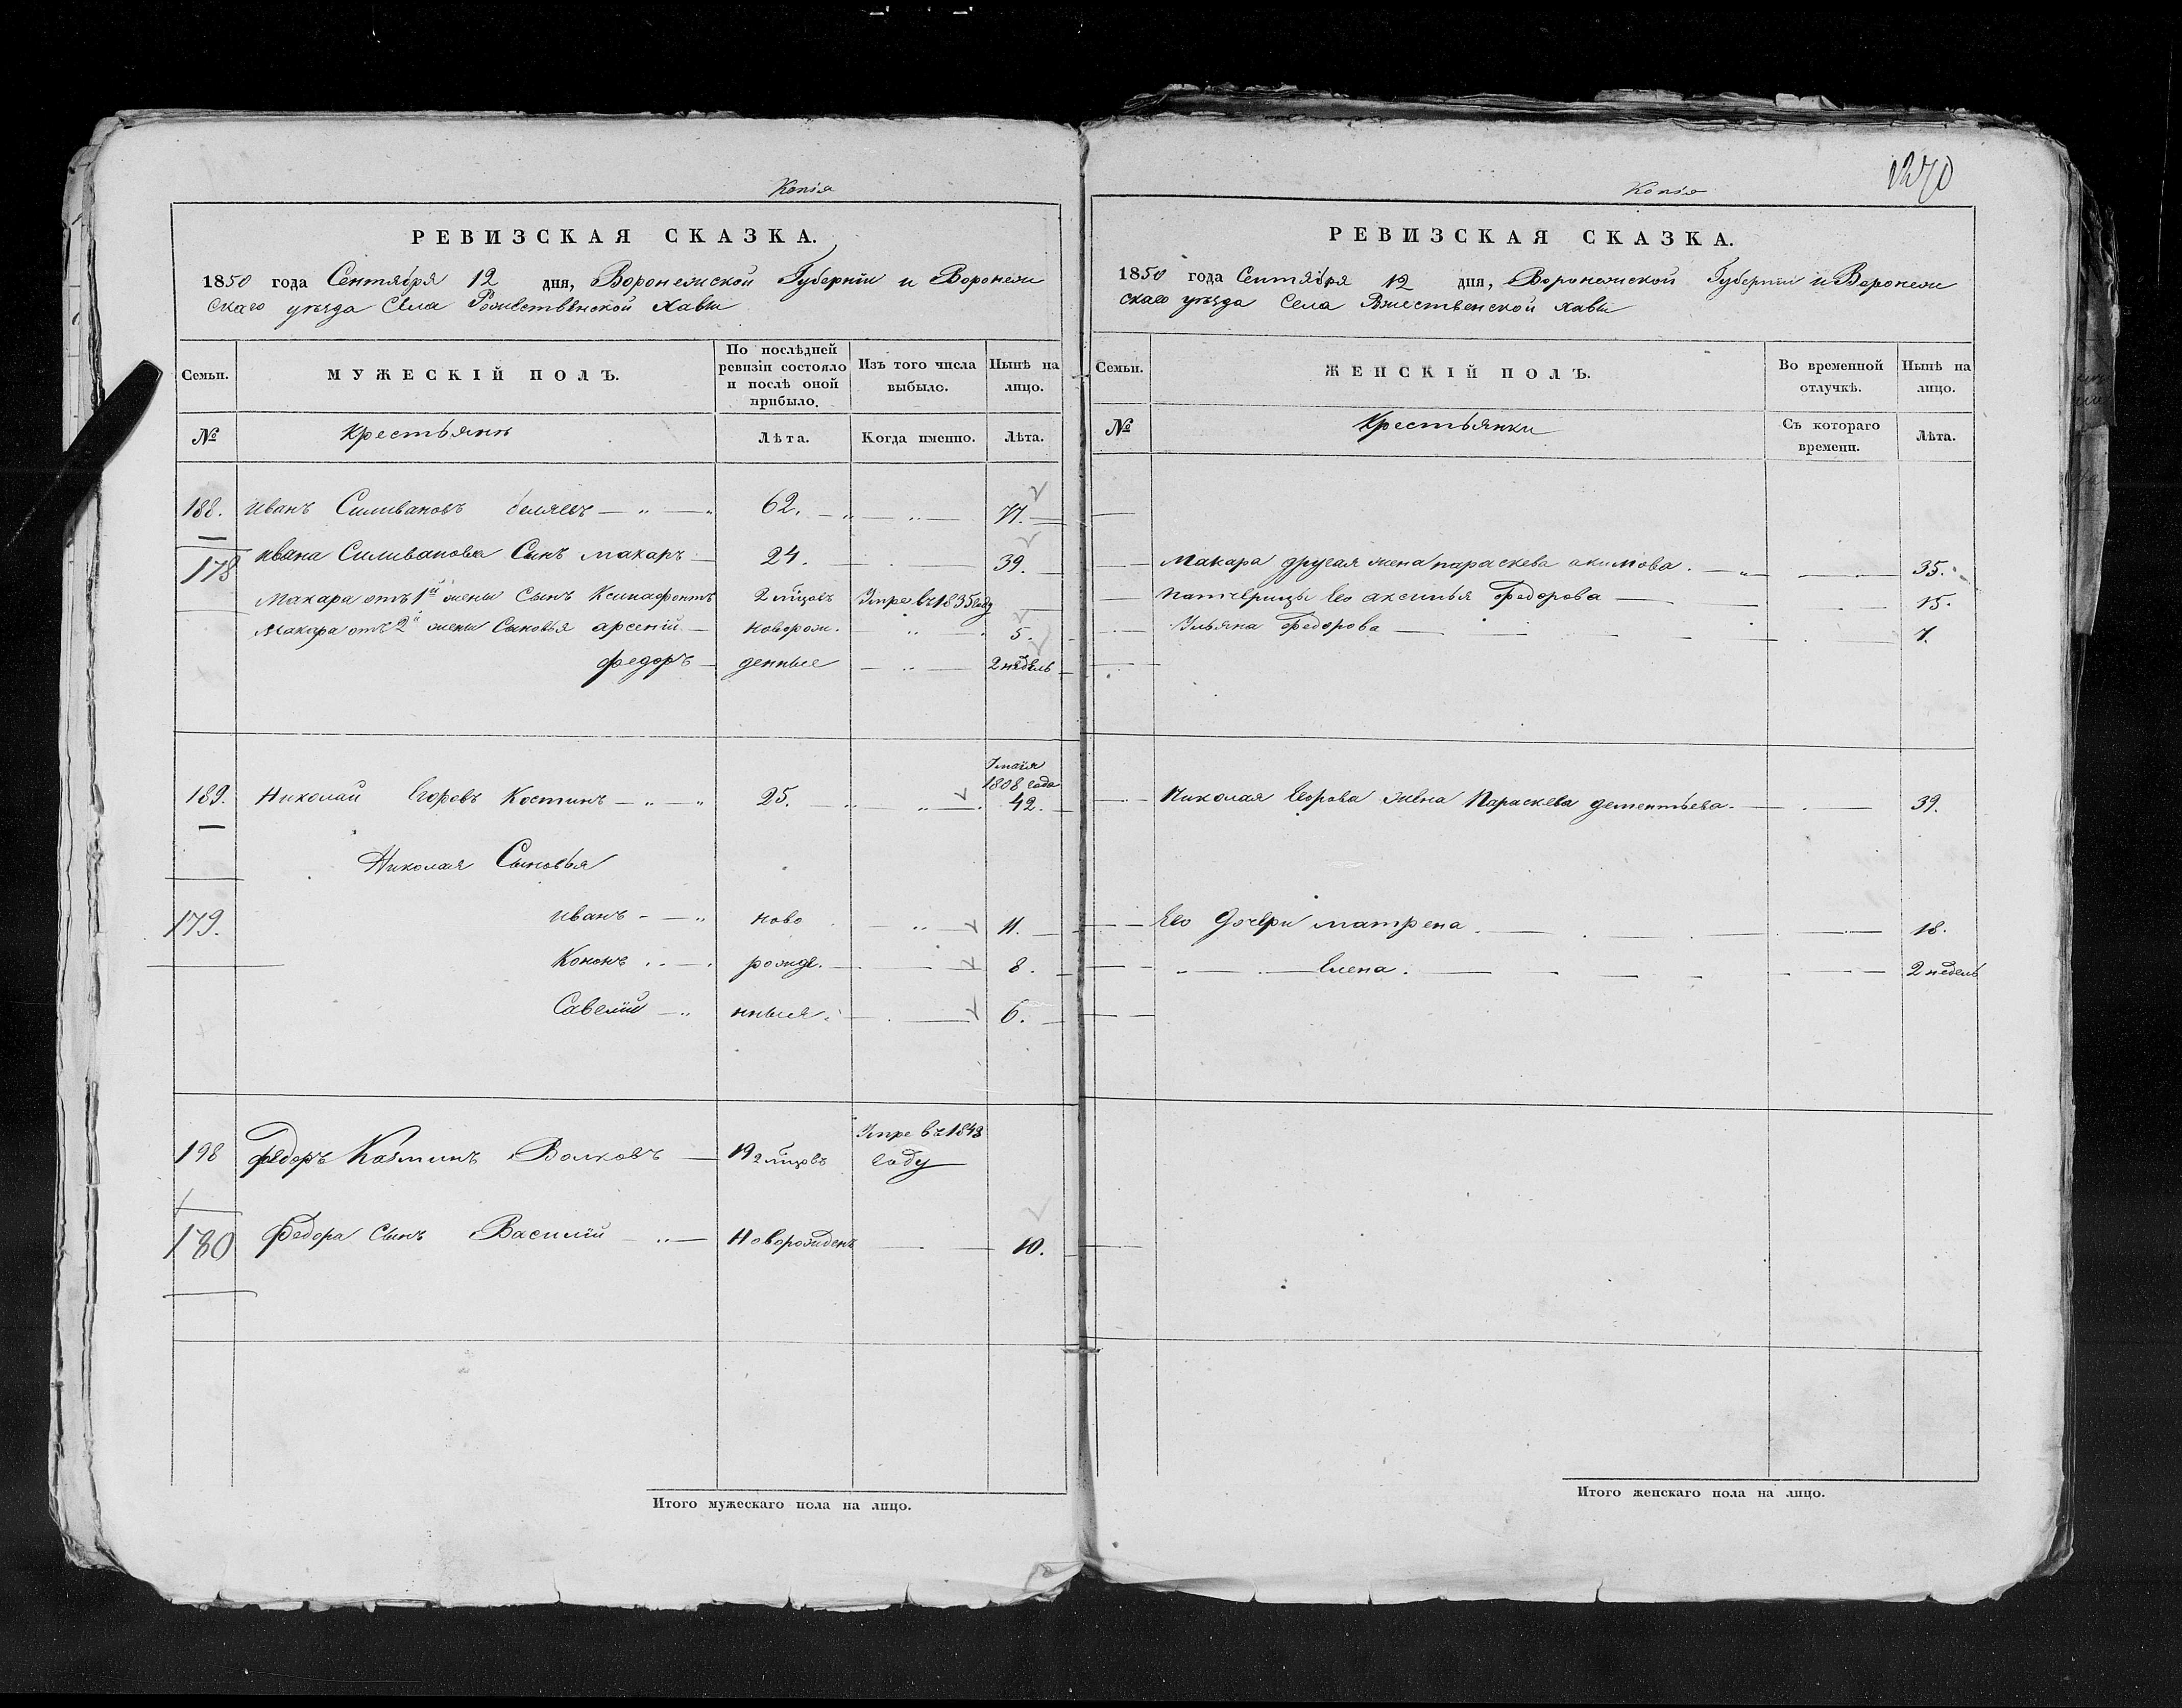 Копія
РЕВИЗСКАЯ СКАЗКА.
1850 года Сентября 12 дня, Воронежской Губерніи и Воронеж
скаго уѣзда Села Рожественской Хавы
Семьи.
МУЖЕСКІЙ ПОЛЪ.
По послѣдней
ревизіи состояло
и послѣ оной
прибыло.
Изъ того числа
выбыло.
Нынѣ на
лицо.
№
Крестьянѣ
Лѣта.
Когда именно.
Лѣта.
188. Иванъ Силивановъ беляевъ 62.
178 Ивана Силиванова Сынъ макаръ 24. 39.
Макара отъ 1й жены Сынъ Ксинафонтъ 2 мѣцовъ Умре въ 1835 году
Макара отъ 2й жены Сыновья арсеній новорож. 5.
федоръ денные 2 недель
7 маія
1808 года
189. Николай Егоровъ Костинъ 25. 42.
Николая Сыновья
179. иванъ ново 11.
Кононъ рожде. 8.
Савелій нныя 6.
198 Федоръ Козминъ Волковъ 19 2 мѣцовъ Умре въ 1843
году
180 Федора сынъ Василій Новорожденъ 10.
Итого мужескаго пола на лицо.
Копія
РЕВИЗСКАЯ СКАЗКА.
1850 года Сентября 12 дня, Воронежской Губерніи и Воронеж
скаго уѣзда Села Рожественской Хавы
Семьи.
ЖЕНСКІЙ ПОЛЪ.
Во временной
отлучкѣ.
Нынѣ на
лицо.
№
Крестьянки
Съ котораго
времени.
Лѣта.
Макара другая жена параскева акимова. 35.
патчерицы ево аксинья Федорова 15.
Ульяна Федорова 7.
Николая Егорова жена Параскева дементьева. 39.
Ево Дочери матрена 18.
Елена. 2 недель
Итого женскаго пола на лицо.